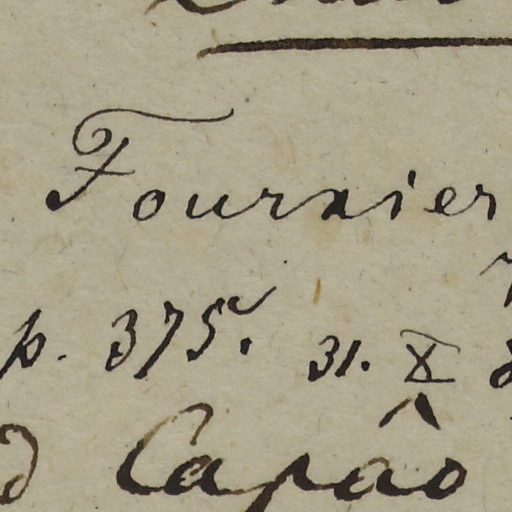 Fournier
p. 375. 31. X
d Capâo